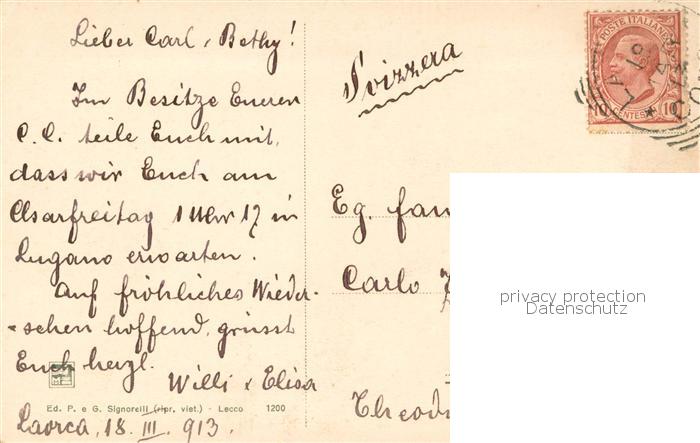 Lieber Carl & Bethy!
Im Besitze Eueren
C.C. teile Euch mit,
dass wir Euch am
Charfreitag 1 Uhr 17 in
Lugano erwarten.
Auf fröhliches Wieder-
-sehen hoffend, grüsst
Euch herzl.
Willi & Elisa
Ed. P. e G. Signorelli (ripr. viet.) - Lecco 1200
Laorca, 18. III. 913.
Svizzera
POSTE ITALIANE
CENTES 10
Eg. fam
Carlo
Theod
privacy protection
Datenschutz